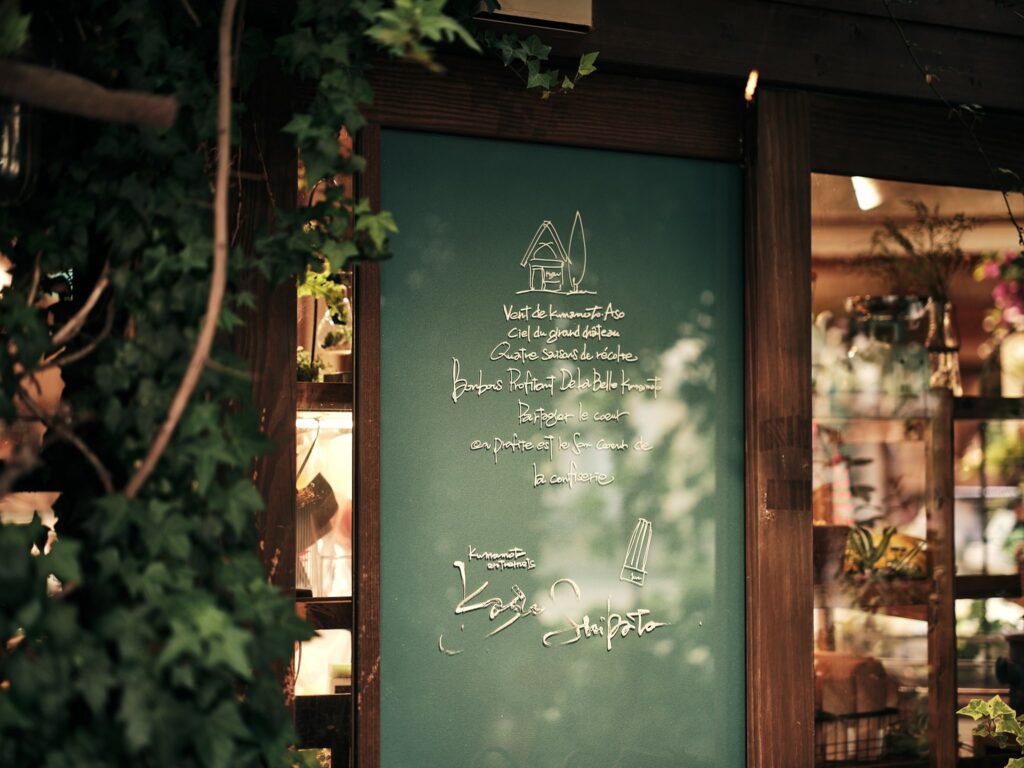 Vent de Kumamoto Aso
Ciel du grand château
Quatre saisons de récolte
Bonbons Profitant De La Belle Kumamoto
Partager le cœur
on profite est le
la confiserie
Kumamoto
entremets